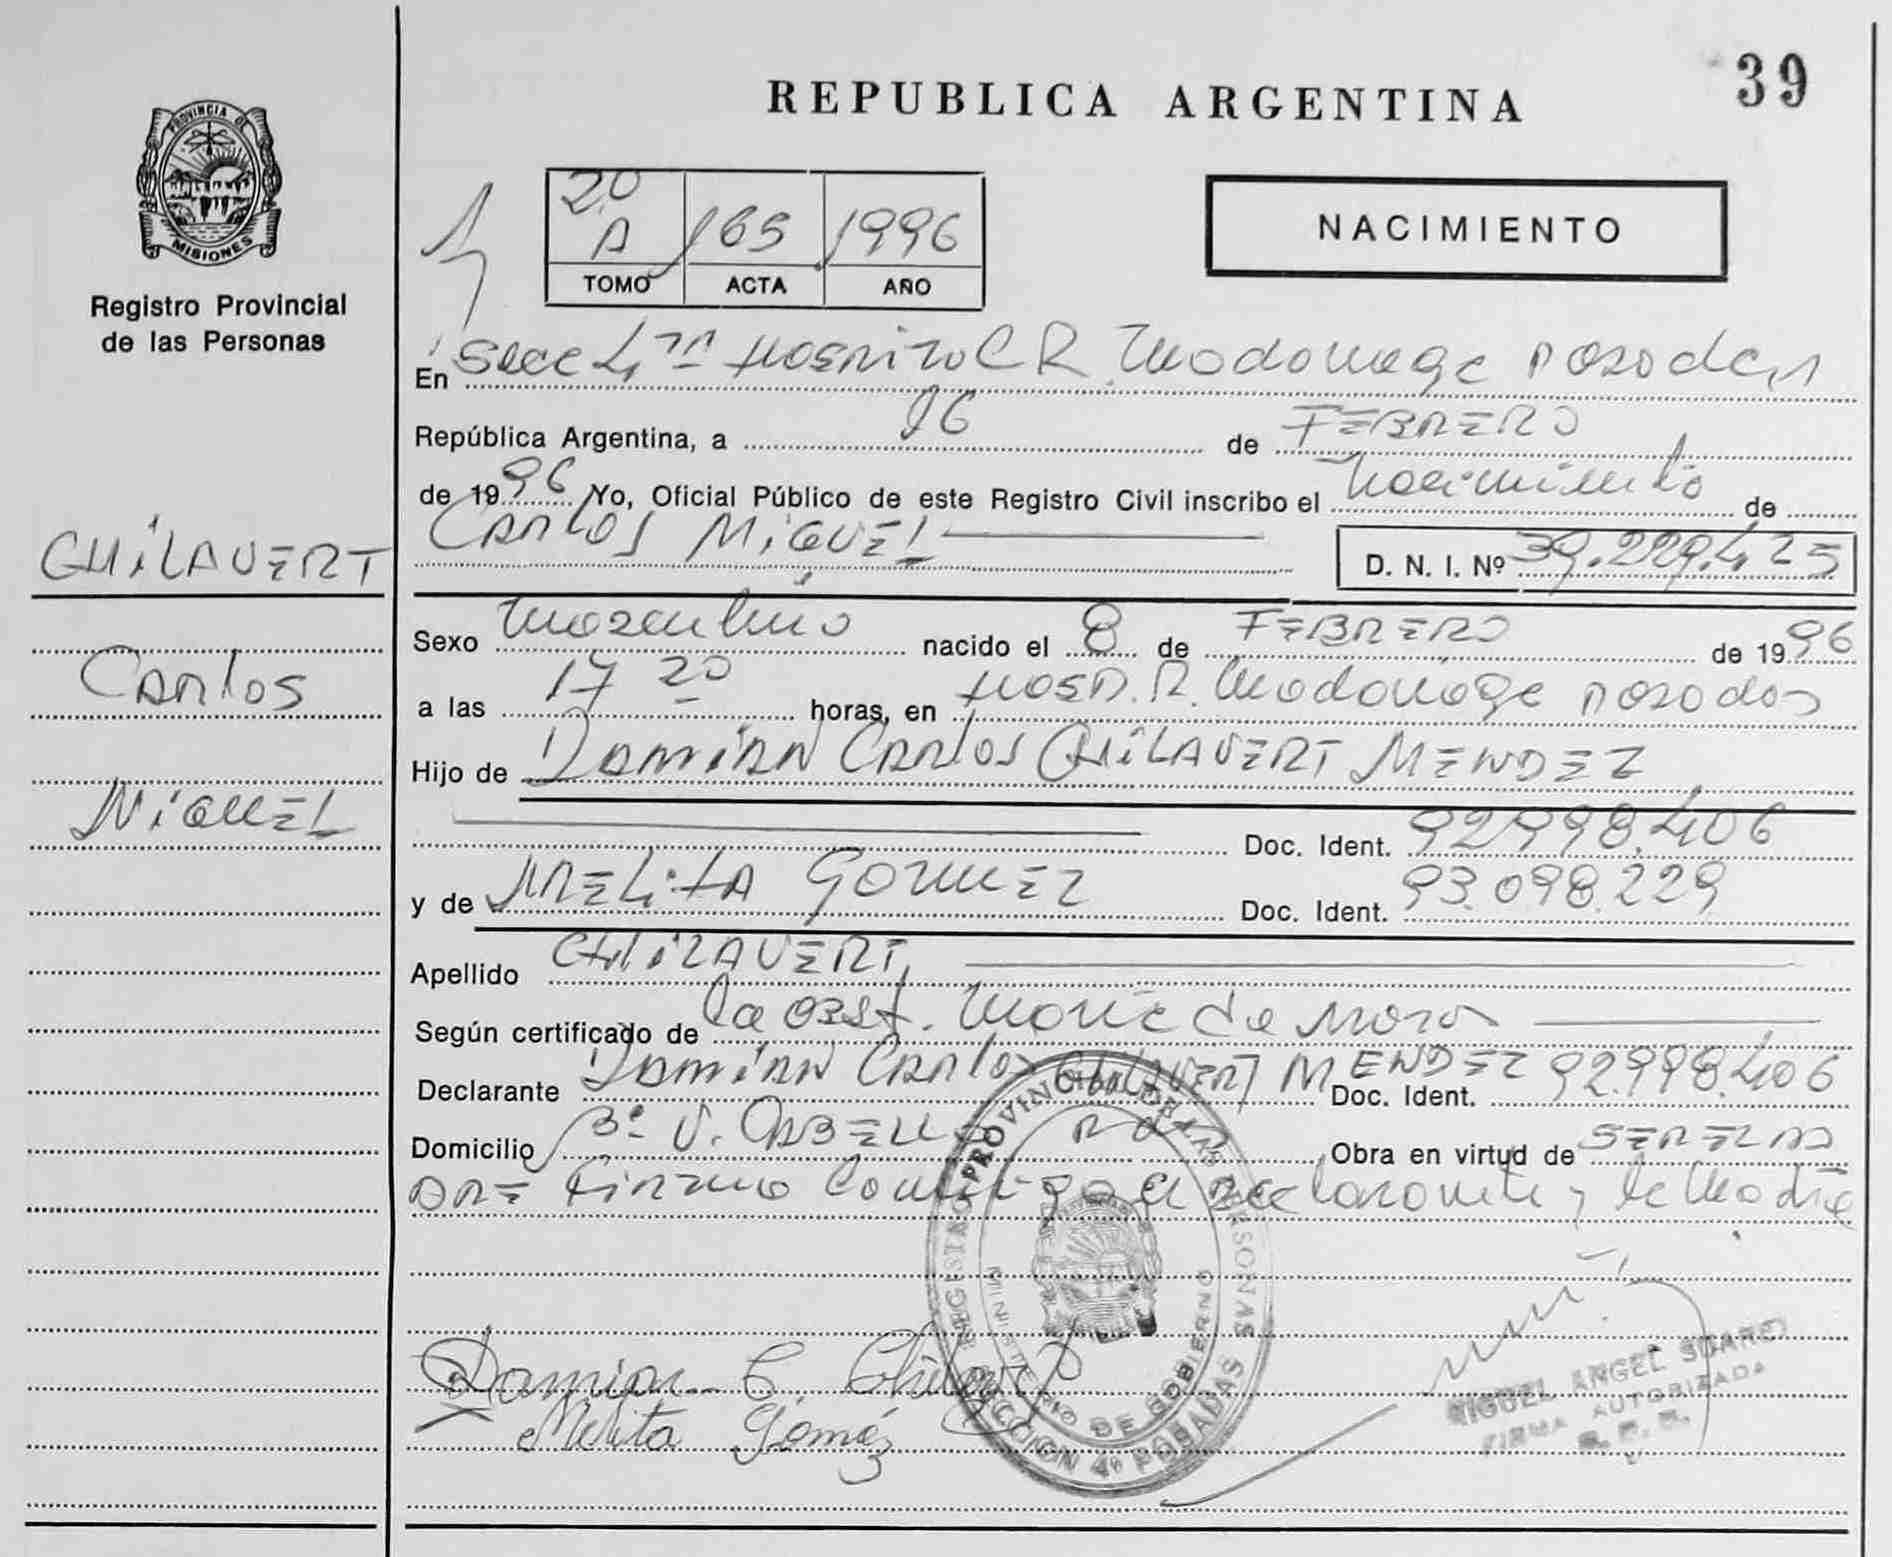 39
REPUBLICA ARGENTINA
PROVINCIA DE
MISIONES
Registro Provincial
de las Personas
20
A 165 1996
TOMO ACTA AÑO
NACIMIENTO
En Secc 4ta Hospital R. Madariaga Posadas
República Argentina, a de FEBRERO
de 1996 Yo, Oficial Público de este Registro Civil inscribo el Nacimiento de
Carlos Miguel D. N. I. Nº 39.229.425
CHILAVERT
Carlos
Miguel
Sexo Masculino nacido el 8 de FEBRERO de 1996
a las 17 20 horas, en Hosp. R. Madariaga Posadas
Hijo de Damian Carlos CHILAVERT MENDEZ
Doc. Ident. 92998.406
y de MELITA GOMEZ Doc. Ident. 93.098.229
Apellido CHILAVERT
Según certificado de la Obst. de Mora
Declarante Damian Carlos CHILAVERT MENDEZ Doc. Ident. 92.998.406
Domicilio Bº Obra en virtud de
Firman conmigo el declarante y la Madre
REGISTRO PROVINCIAL DE LAS PERSONAS
MINISTERIO DE GOBIERNO
SECCION 4ª POSADAS
Damian C. Chilavert
Melita Gómez
MIGUEL ANGEL SUAREZ
FIRMA AUTORIZADA